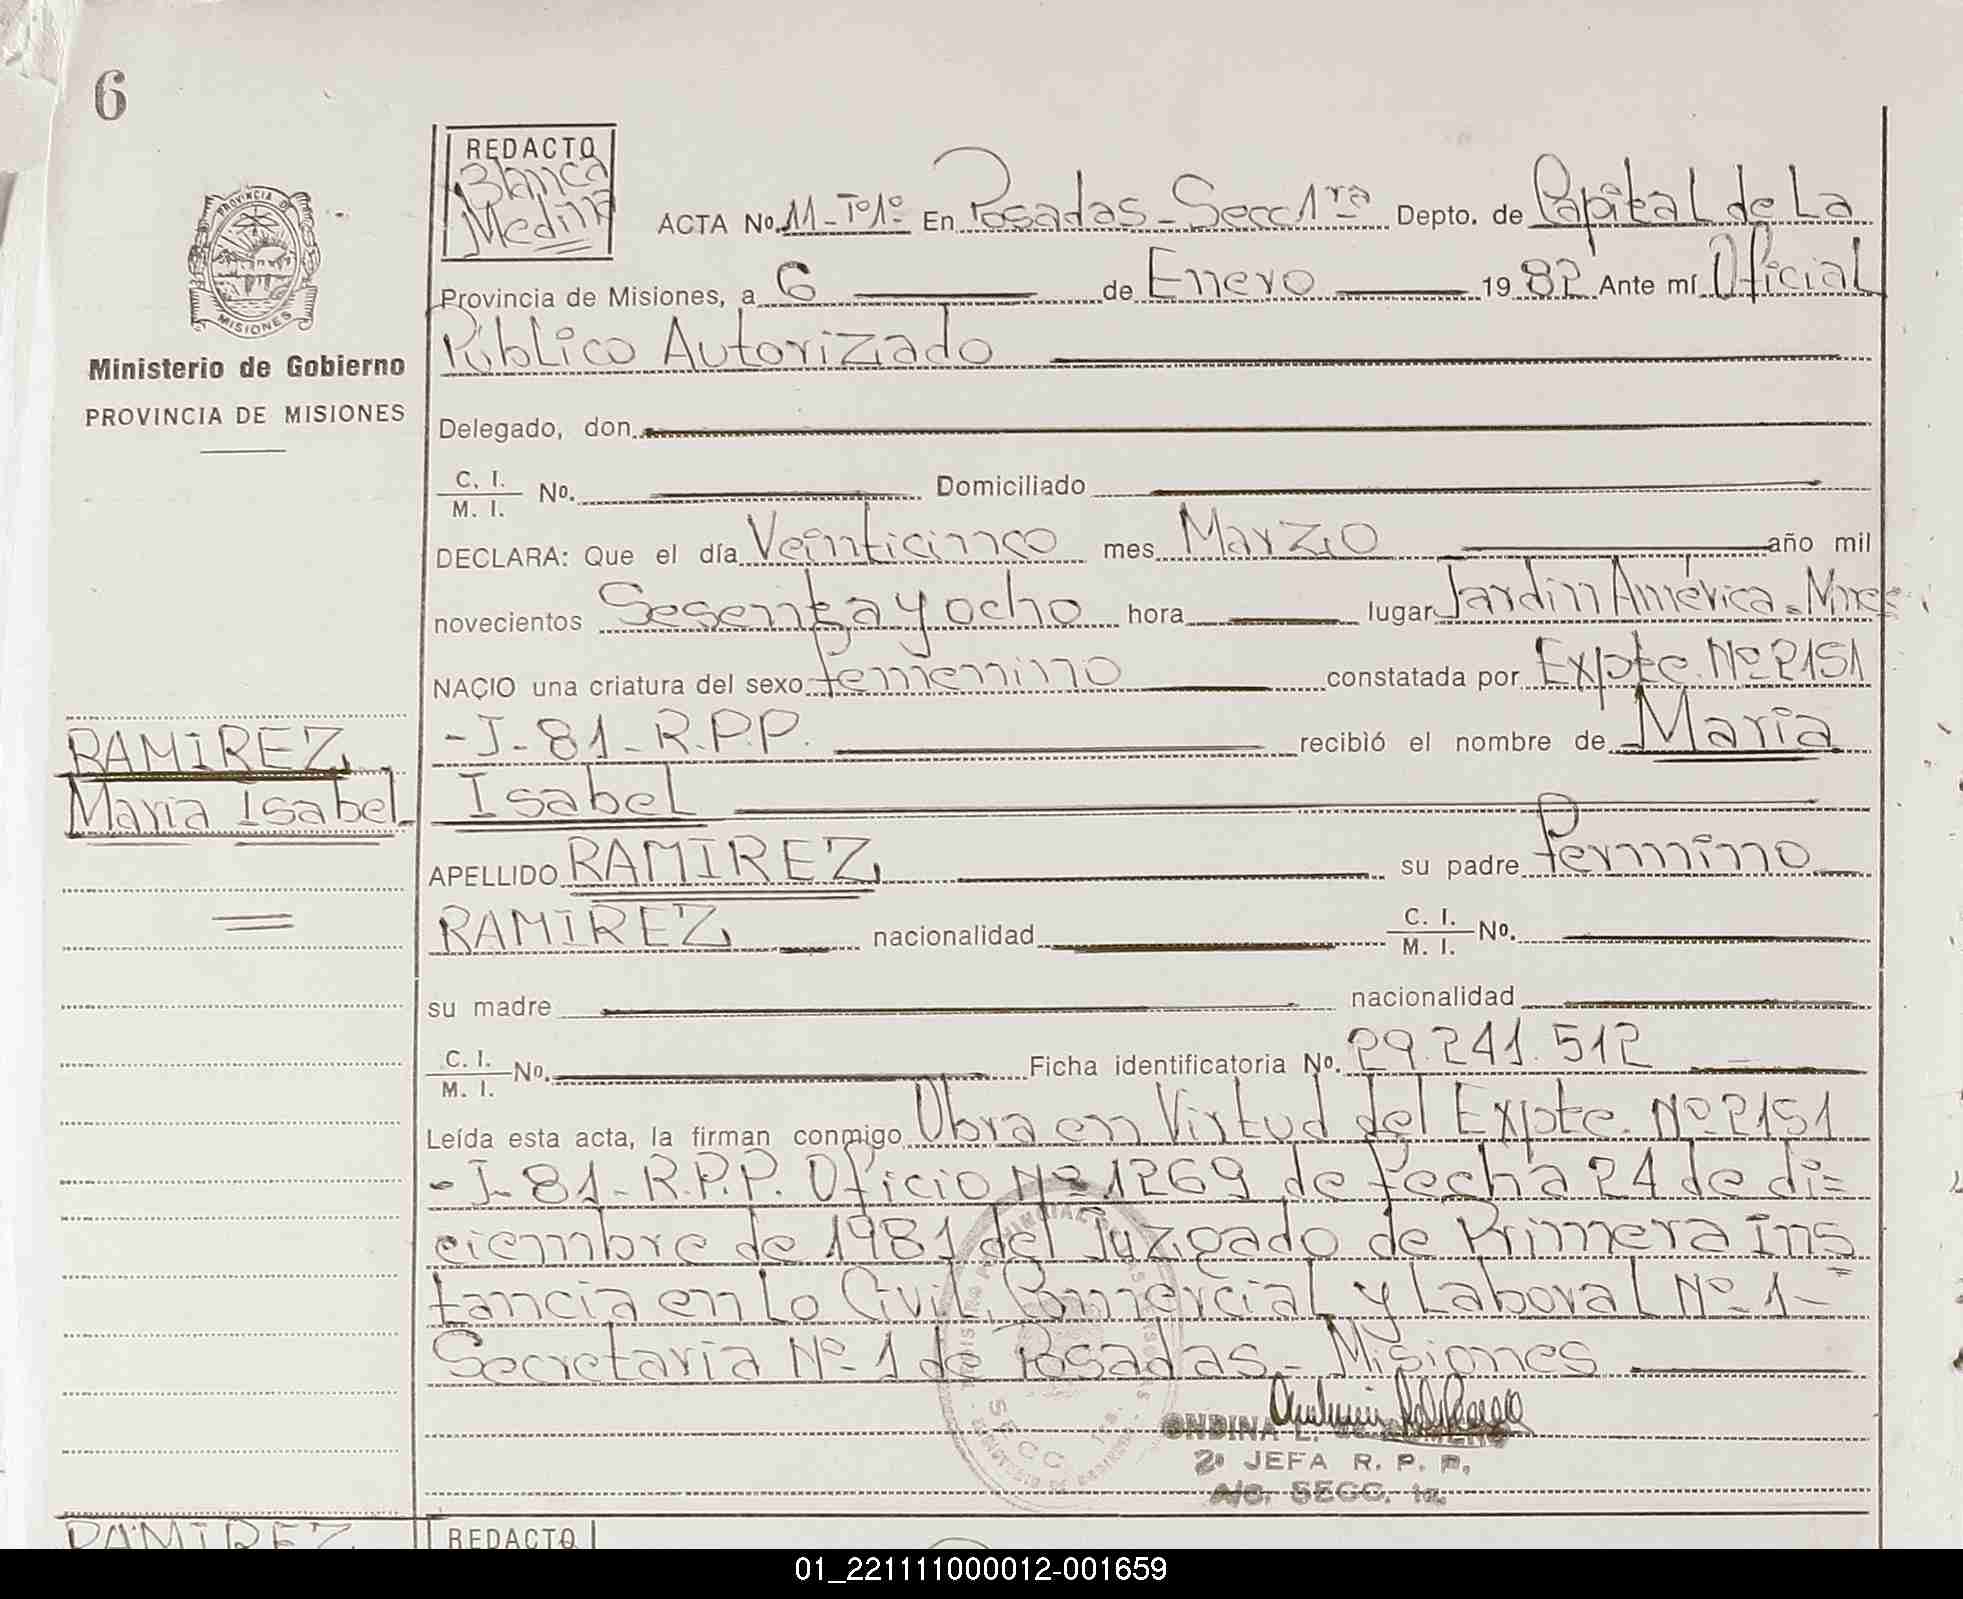 6
REDACTO
Blanca
Medina
PROVINCIA DE
MISIONES
Ministerio de Gobierno
PROVINCIA DE MISIONES
ACTA No. 11-Tº1º En Posadas-Secc 1ra Depto. de Capital de La
Provincia de Misiones, a 6 de Enero 1982 Ante mí Oficial
Público Autorizado
Delegado, don
C. I.
M. I. No. Domiciliado
DECLARA: Que el día Veinticinco mes Marzo año mil
novecientos Sesenta y ocho hora lugar Jardín América - Mnes
NACIO una criatura del sexo femenino constatada por Expte. Nº 2151
-J-81-R.P.P. recibió el nombre de María
Isabel
RAMIREZ
María Isabel
APELLIDO RAMIREZ su padre Fermino
RAMIREZ nacionalidad C. I.
M. I. No.
su madre nacionalidad
C. I.
M. I. No. Ficha identificatoria No. 29.241.512
Leída esta acta, la firman conmigo Obra en Virtud del Expte. Nº 2151
-J-81-R.P.P. Oficio Nº 1269 de fecha 24 de di=
ciembre de 1981 del Juzgado de Primera Ins
tancia en lo Civil, Comercial y Laboral Nº 1-
Secretaria Nº 1 de Posadas - Misiones
SECC. 1ra.
ONDINA L. de
2º JEFA R. P. P.
A/C. SECC. 1a.
RAMIREZ
REDACTO
01_221111000012-001659